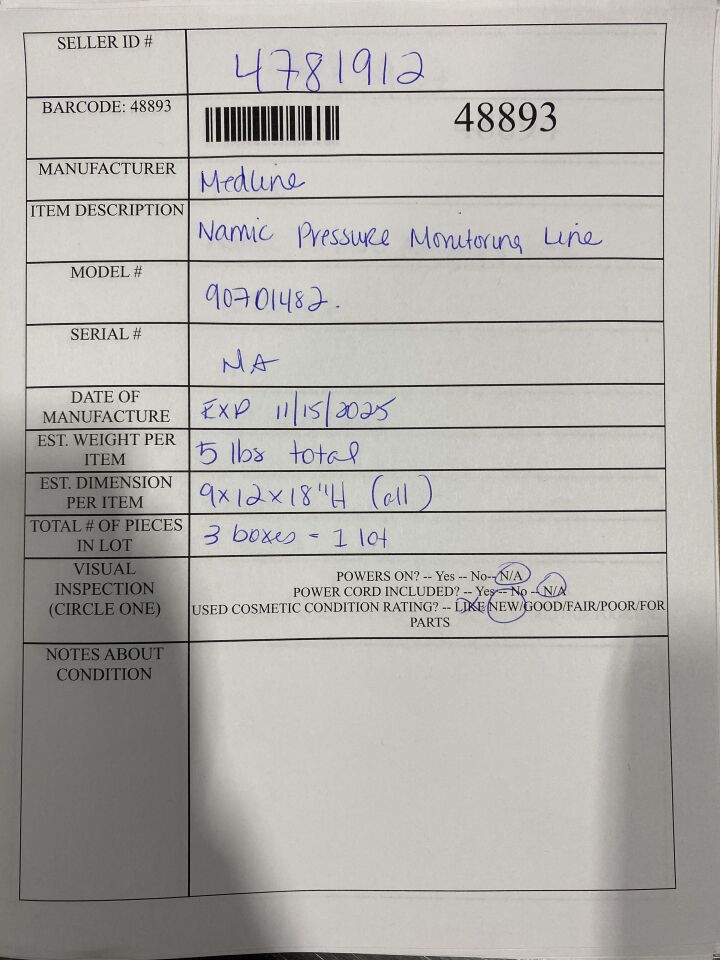 SELLER ID #
4781912
BARCODE: 48893
48893
MANUFACTURER
Medline
ITEM DESCRIPTION
Namic Pressure Monitoring Line
MODEL #
90701482.
SERIAL #
NA
DATE OF
MANUFACTURE
EXP 11/15/2025
EST. WEIGHT PER
ITEM
5 lbs total
EST. DIMENSION
PER ITEM
9x12x18"H (all)
TOTAL # OF PIECES
IN LOT
3 boxes = 1 lot
VISUAL
INSPECTION
(CIRCLE ONE)
POWERS ON? -- Yes -- No-- N/A
POWER CORD INCLUDED? -- Yes -- No -- N/A
USED COSMETIC CONDITION RATING? -- LIKE NEW/GOOD/FAIR/POOR/FOR
PARTS
NOTES ABOUT
CONDITION